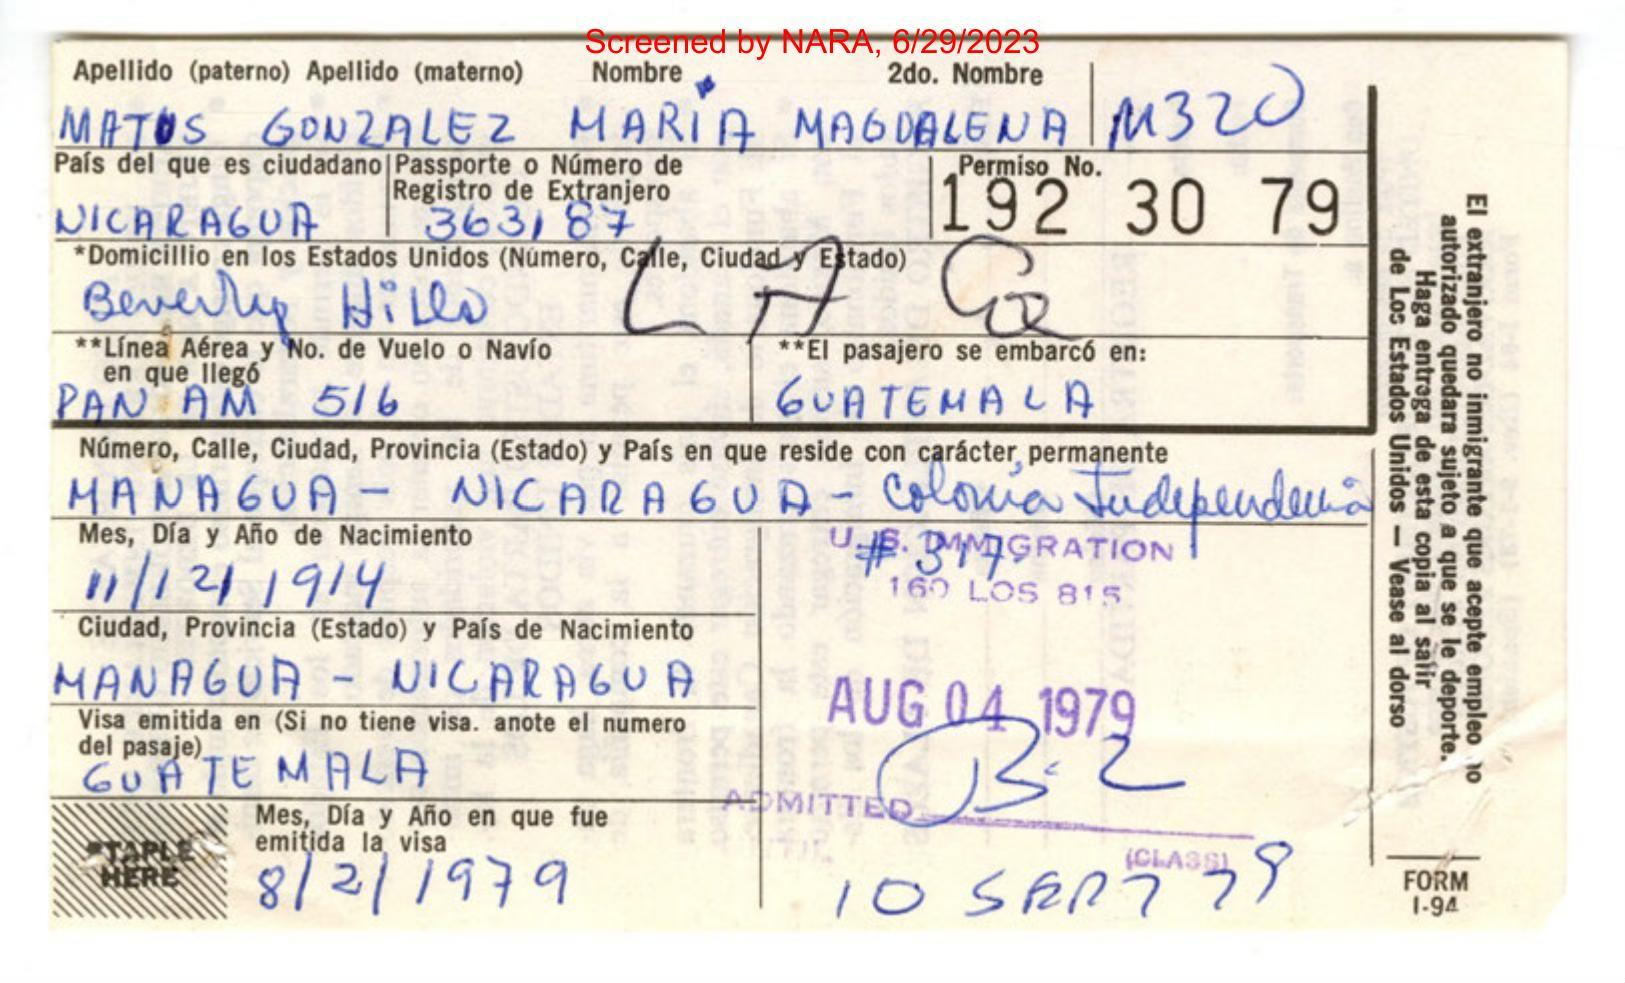 Screened by NARA, 6/29/2023
Apellido (paterno) Apellido (materno) Nombre 2do. Nombre
MATUS GONZALEZ MARIA MAGDALENA M320
País del que es ciudadano Passporte o Número de Registro de Extranjero Permiso No.
NICARAGUA 363187 192 30 79
*Domicillio en los Estados Unidos (Número, Calle, Ciudad y Estado)
Beverly Hills LA Ca
**Línea Aérea y No. de Vuelo o Navío en que llegó **El pasajero se embarcó en:
PAN AM 516 GUATEMALA
Número, Calle, Ciudad, Provincia (Estado) y País en que reside con carácter permanente
MANAGUA - NICARAGUA - Colonia Independencia
#317
Mes, Día y Año de Nacimiento
11/12/1914
U.S. IMMIGRATION
160 LOS 815
Ciudad, Provincia (Estado) y País de Nacimiento
MANAGUA - NICARAGUA
AUG 04 1979
Visa emitida en (Si no tiene visa. anote el numero
del pasaje)
GUATEMALA
B-2
ADMITTED
(CLASS)
STAPLE
HERE
Mes, Día y Año en que fue
emitida la visa
8/2/1979
10 SEPT 79
El extranjero no inmigrante que acepte empleo no
autorizado quedara sujeto a que se le deporte.
Haga entroga de esta copia al salir
de Los Estados Unidos — Vease al dorso
FORM
I-94